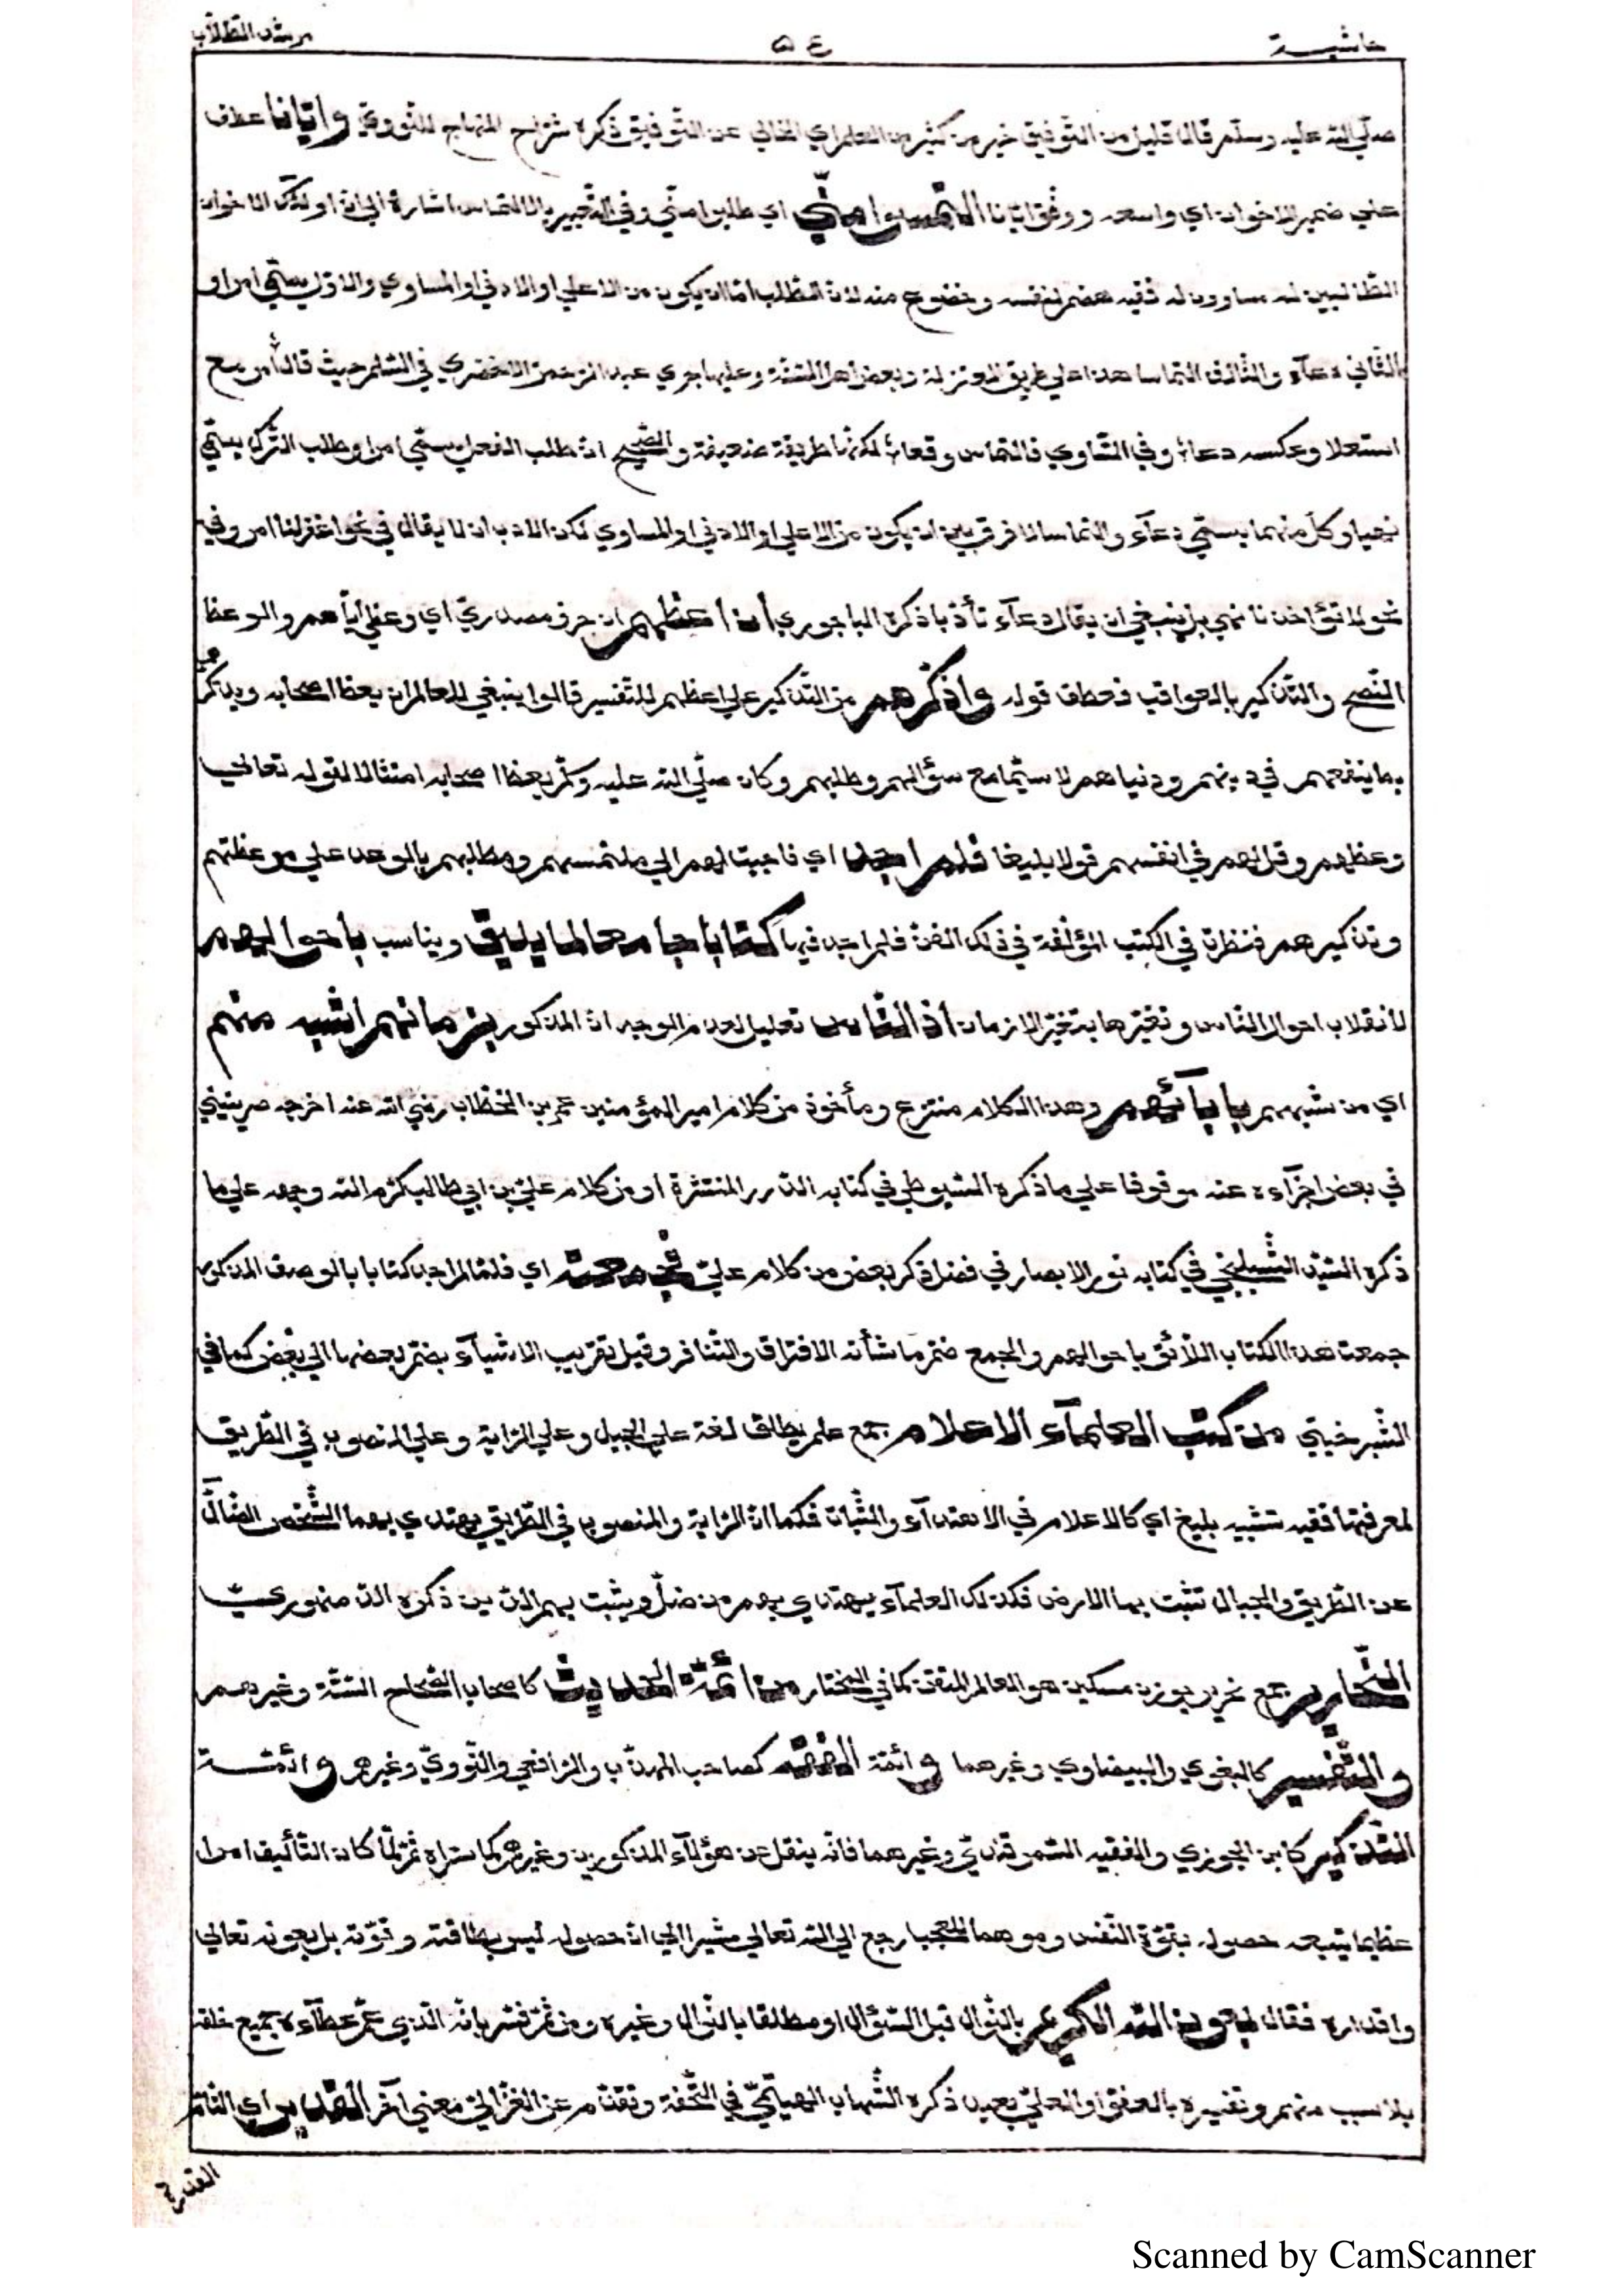 حاشية ٥٤ مرشد الطلاب
صلي الله عليه وسلم قال قليل من التوفيق خير من كثير من العلم اي الخالي عن التوفيق ذكره شراح المنهاج للنووي وايّانا عطف
علي ضمير الاخوان اي واسعد ووفق ايانا التمسوا منّي اي طلبوا منّي وفي التعبير بالالتماس اشارة الي ان اولئك الاخوان
الطّالبين له مساوون له ففيه هضم لنفسه وخضوع منه لان الطلب امّا ان يكون من الاعلي او الادني او المساوي والاوّل يسمّي امرا و
الثّاني دعآء والثّالث التماسا هذا علي طريق المعتزلة وبعض اهل السّنّة وعليها جري عبد الرحمن الاخضري في السّلم حيث قال أمر مع
استعلا وعكسه دعاء وفي التّساوي فالتماس وقعا لكنّها طريقة ضعيفة والصّحيح انّ طلب الفعل يسمّي امرا وطلب الترك يسمّي
نهيا وكلّ منهما يسمّي دعآء والتماسا لا فرق بين ان يكون من الاعلي او الادني او المساوي لكن الادب ان لا يقال في نحو اغفر لنا امر وفي
نحو لا تؤاخذنا نهي بل ينبغي ان يقال دعآء تأدّبا ذكره الباجوري ان اعظهم ان حرف مصدريّ اي وعظي ايّاهم والوعظ
النّصح والتّذكير بالعواقب فعطف قوله واذكّرهم من التّذكير علي اعظهم للتّفسير قالوا ينبغي للعالم ان يعظ اصحابه ويذكّرهم
بما ينفعهم في دينهم ودنياهم لا سيّما مع سؤالهم وطلبهم وكان صلّي الله عليه وسلّم يعظ اصحابه امتثالا لقوله تعالي
وعظهم وقل لهم في انفسهم قولا بليغا فلم اجد اي فاجبت لهم الي ملتمسهم ومطلبهم بالوعد علي موعظتهم
وتذكيرهم فنظرت في الكتب المؤلّفة في ذلك الفنّ فلم اجد فيها كتابا جامعا لما يليق ويناسب باحوالهم
لأنقلاب احوال النّاس وتغيّرها بتغيّر الازمان اذ النّاس تعليل لعدم الوجدان المذكور بزمانهم اشبه منهم
اي من شبههم بابآئهم وهذا الكلام منتزع ومأخوذ من كلام امير المؤمنين عمر بن الخطّاب رضي الله عنه اخرجه صريفيني
في بعض اجزآءه عنه موقوفا علي ما ذكره السّيوطي في كتابه الدّرر المنتثرة او من كلام عليّ بن ابي طالب كرّم الله وجهه علي ما
ذكره السّيّد الشّبلنجي في كتابه نور الابصار في فصل ذكر بعض من كلام عليّ فجمعته اي فلمّا لم اجد كتابا بالوصف المذكور
جمعت هذا الكتاب اللّائق باحوالهم والجمع ضمّ ما شأنه الافتراق والتّنافر وقيل تقريب الاشيآء بضمّ بعضها الي بعض كما في
الشّبرخيتي من كتب العلمآء الاعلام جمع علم يطلق لغة علي الجبل وعلي الرّاية وعلي المنصوب في الطّريق
لمعرفتها ففيه تشبيه بليغ اي كالاعلام في الاهتدآء والثّبات فكما انّ الرّاية والمنصوب في الطّريق يهتدي بهما الشّخص الضّالّ
عن الطّريق والجبال تثبت بها الارض فكذلك العلمآء يهتدي بهم من ضلّ ويثبت بهم الدّين ذكره الدّمنهوري
النّحارير جمع نحرير بوزن مسكين هو العالم المتقن كما في المختار من ائمّة الحديث كاصحاب الصّحاح السّتّة وغيرهم
والتّفسير كالبغوي والبيضاوي وغيرهما وائمّة الفقه كصاحب المهذّب والرّافعي والنّوويّ وغيرهم وائمّة
التّذكير كابن الجوزي والفقيه السّمرقنديّ وغيرهما فانّه ينقل عن هؤلآء المذكورين وغيرهم كما ستراه ثمّ لمّا كان التّأليف امرا
عظيما يتبعد حصوله بقوّة النّفس وموهما للعجب رجع الي الله تعالي مشيرا الي انّ حصوله ليس بطاقته وقوّته بل بعونه تعالي
واقداره فقال بعون الله الكريم بالنّوال قبل السّؤال او مطلقا بالنّوال وغيره ومن ثمّ فسّر بانّه الّذي عمّ عطآءه جميع خلقه
بلا سبب منهم وتفسيره بالعفوّ او العليّ بعيد ذكره الشّهاب الهيتمّي في التّحفة وتقدّم عن الغزّاليّ معني آخر القدير اي التّامّ
القدرة
Scanned by CamScanner